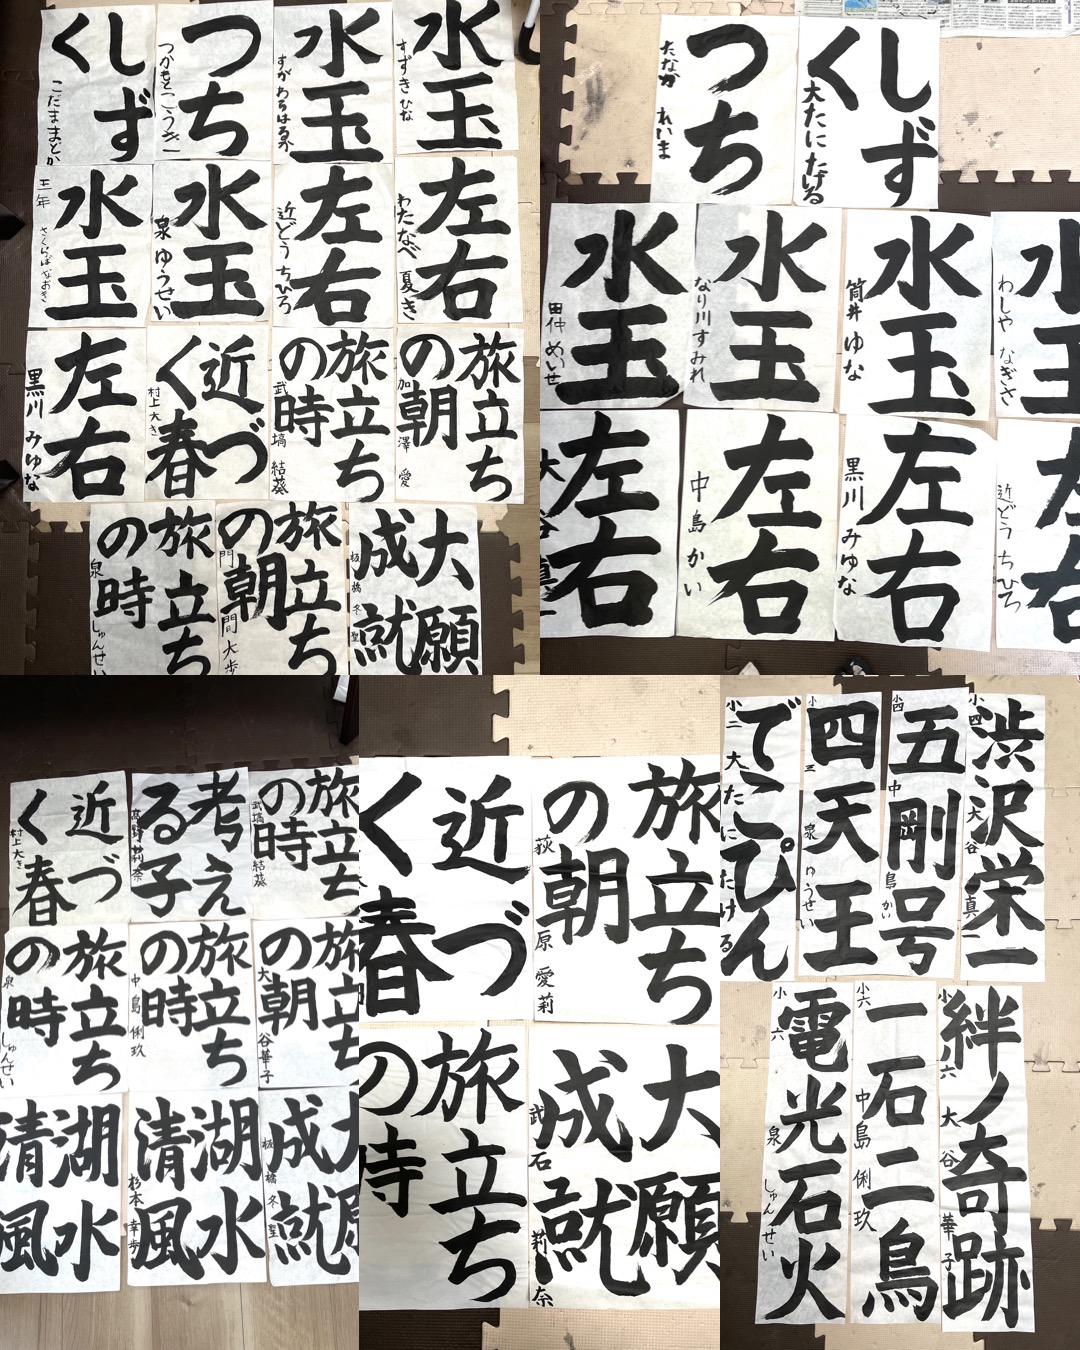 しず
く
こだままどか
つち
つかもとこうき
水玉
水玉
すずきひな
三年
水玉
さくらばなおき
水玉
泉ゆうせい
左右
近どうちひろ
左右
わたなべ夏き
左右
黒川みゆな
近づ
く春
村上大き
旅立ち
の時
武塙結葵
旅立ち
の朝
加澤愛
旅立ち
の時
泉しゅんせい
旅立ち
の朝
門間大歩
大願
成就
板橋冬聖
つち
たなかれいま
しず
く
大たにたける
水玉
田仲めいせ
水玉
なり川すみれ
水玉
筒井ゆな
水玉
わしやなぎさ
左右
大谷真一
左右
中島かい
左右
黒川みゆな
左右
近どうちひろ
近づ
く春
村上大き
考え
る子
髙野莉奈
旅立ち
の時
武塙結葵
旅立ち
の時
泉しゅんせい
旅立ち
の時
中島俐玖
旅立ち
の朝
大谷華子
湖水
清風
湖水
清風
杉本幸歩
大願
成就
板橋冬聖
近づ
く春
旅立ち
の朝
荻原愛莉
旅立ち
の時
大願
成就
武石莉奈
でこぴん
小二大たにたける
四天王
小三泉ゆうせい
五剛号
小四中島かい
渋沢栄一
小四大谷真一
電光石火
小六泉しゅんせい
一石二鳥
小六中島俐玖
絆ノ奇跡
小六大谷華子